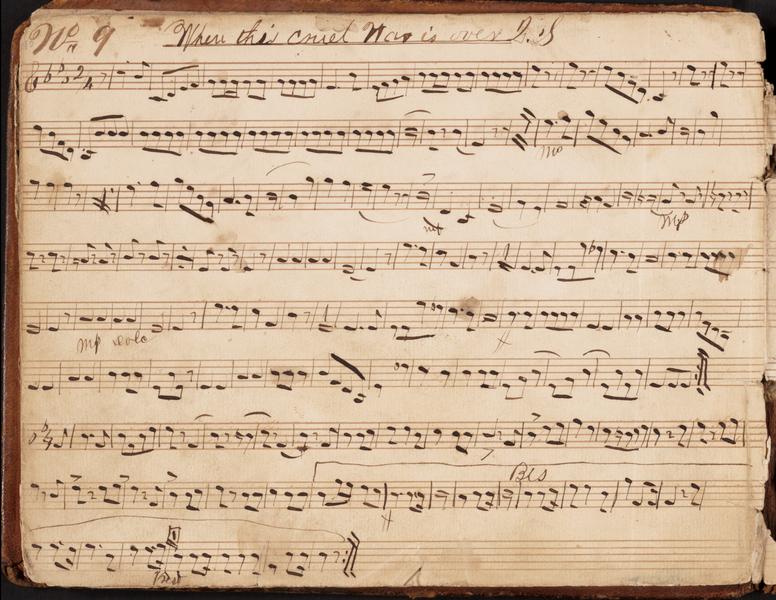 No 9 Where this cruel War is over Q.S
2 4
mp
mf
mp
mp solo
2 4
Bis